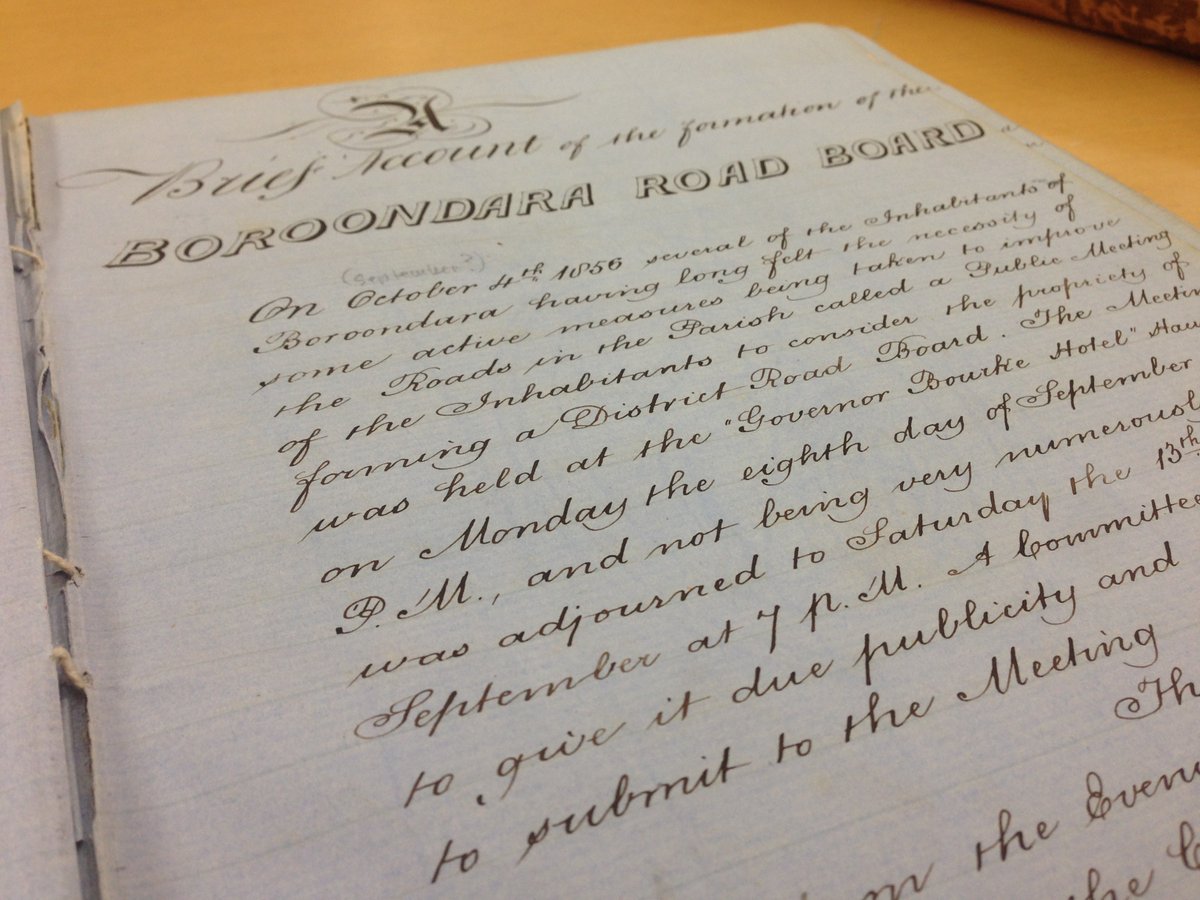 A
Brief Account of the formation of the
BOROONDARA ROAD BOARD
(September?)
On October 4th 1856 several of the Inhabitants of
Boroondara having long felt the necessity of
some active measures being taken to improve
the Roads in the Parish called a Public Meeting
of the Inhabitants to consider the propriety of
forming a District Road Board. The Meetin
was held at the "Governor Bourke Hotel" Haw
on Monday the eighth day of September
P.M., and not being very numerously
was adjourned to Saturday the 13th
September at 7 p.M. A Committee
to give it due publicity and
to submit to the Meeting
Th
on the Eveni
the C